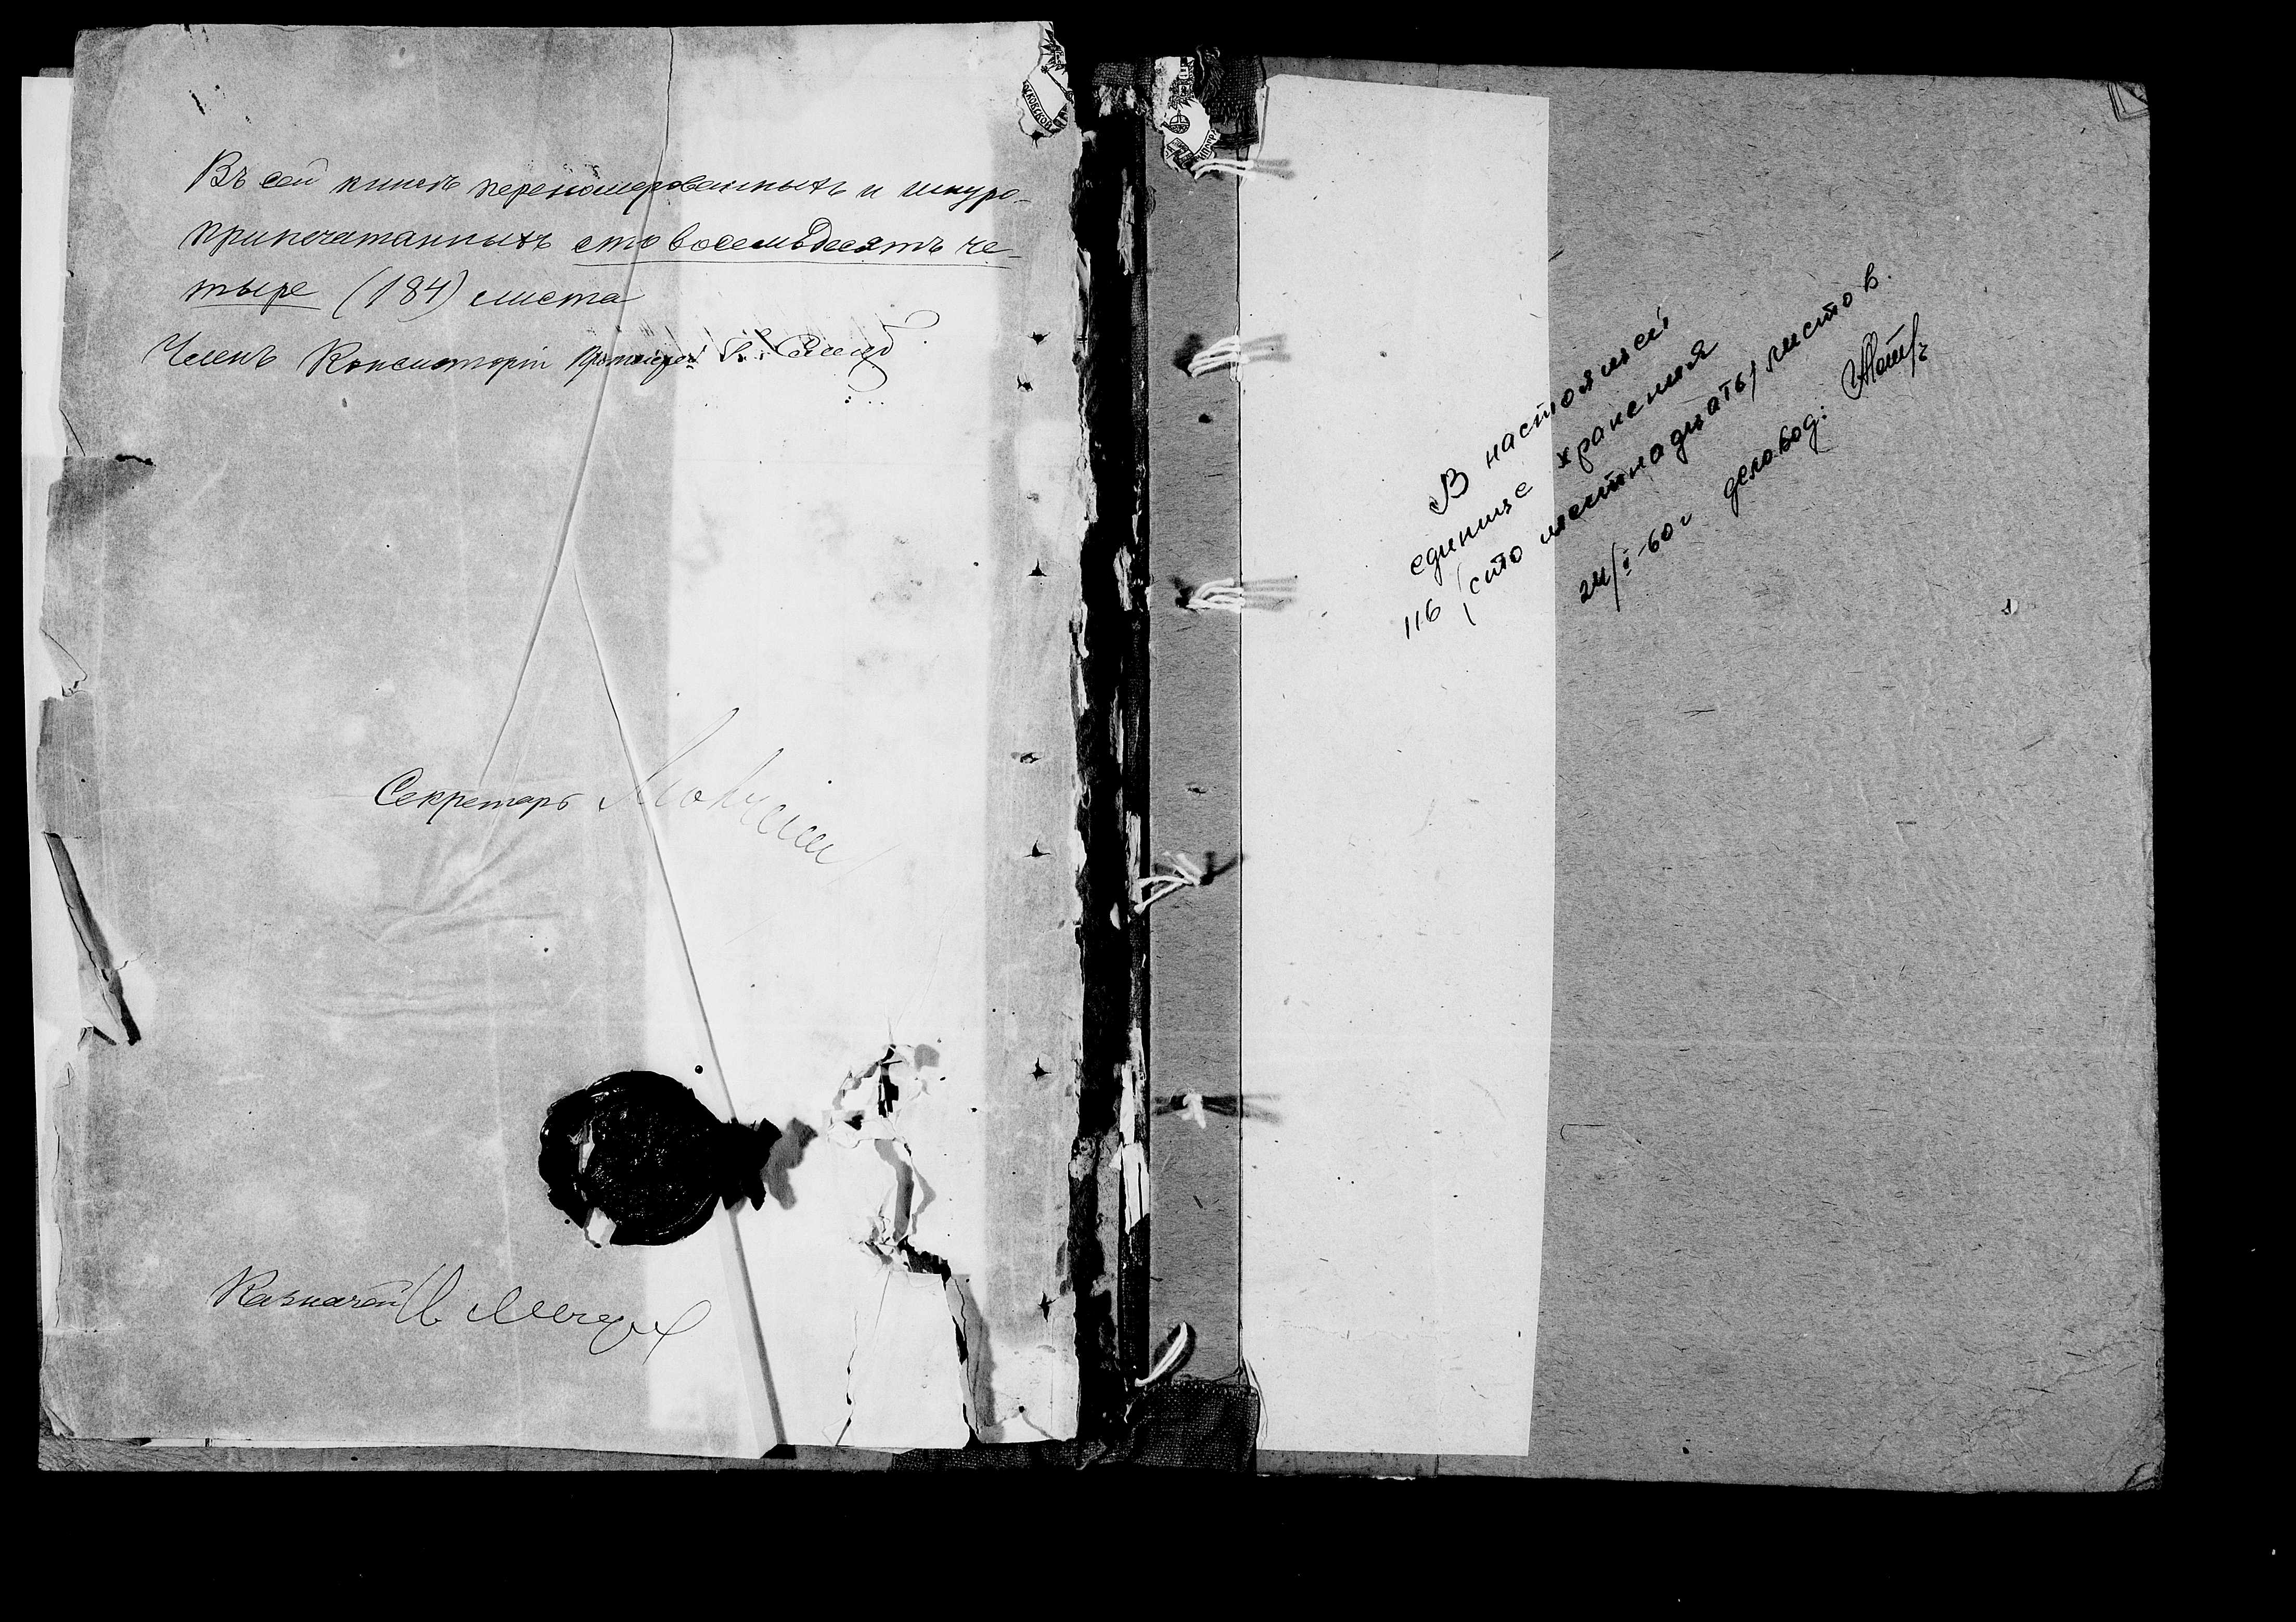 Въ сей книгѣ переномерованныхъ и шнуро-
припечатанныхъ сто восемьдесятъ че-
тыре (184) листа
Членъ Консисторіи Протоіерей
Секретарь
Казначей
В настоящей
единице хранения
116 (сто шестнадцать) листов.
24/I-60 г деловод: